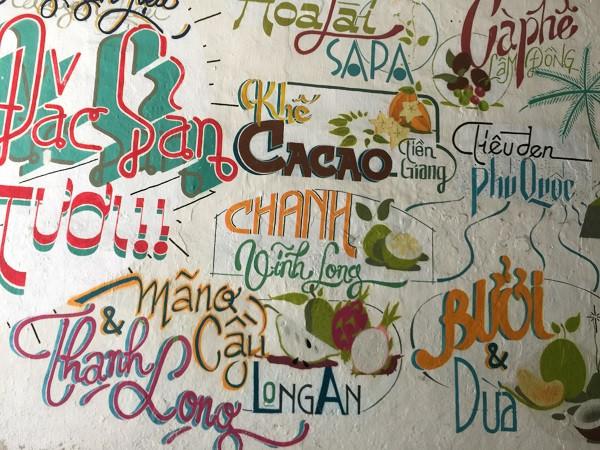 Hoa Lài
SAPA
Càphê
LÂM ĐỒNG
Đặc Sản
TƯƠI!!
Khế
CACAO
Tiền
Giang
Tiêu đen
PHÚ QUỐC
CHANH
Vĩnh Long
Mãng
Cầu
&
Thanh
Long
LONGAN
BƯỞI
&
Dừa